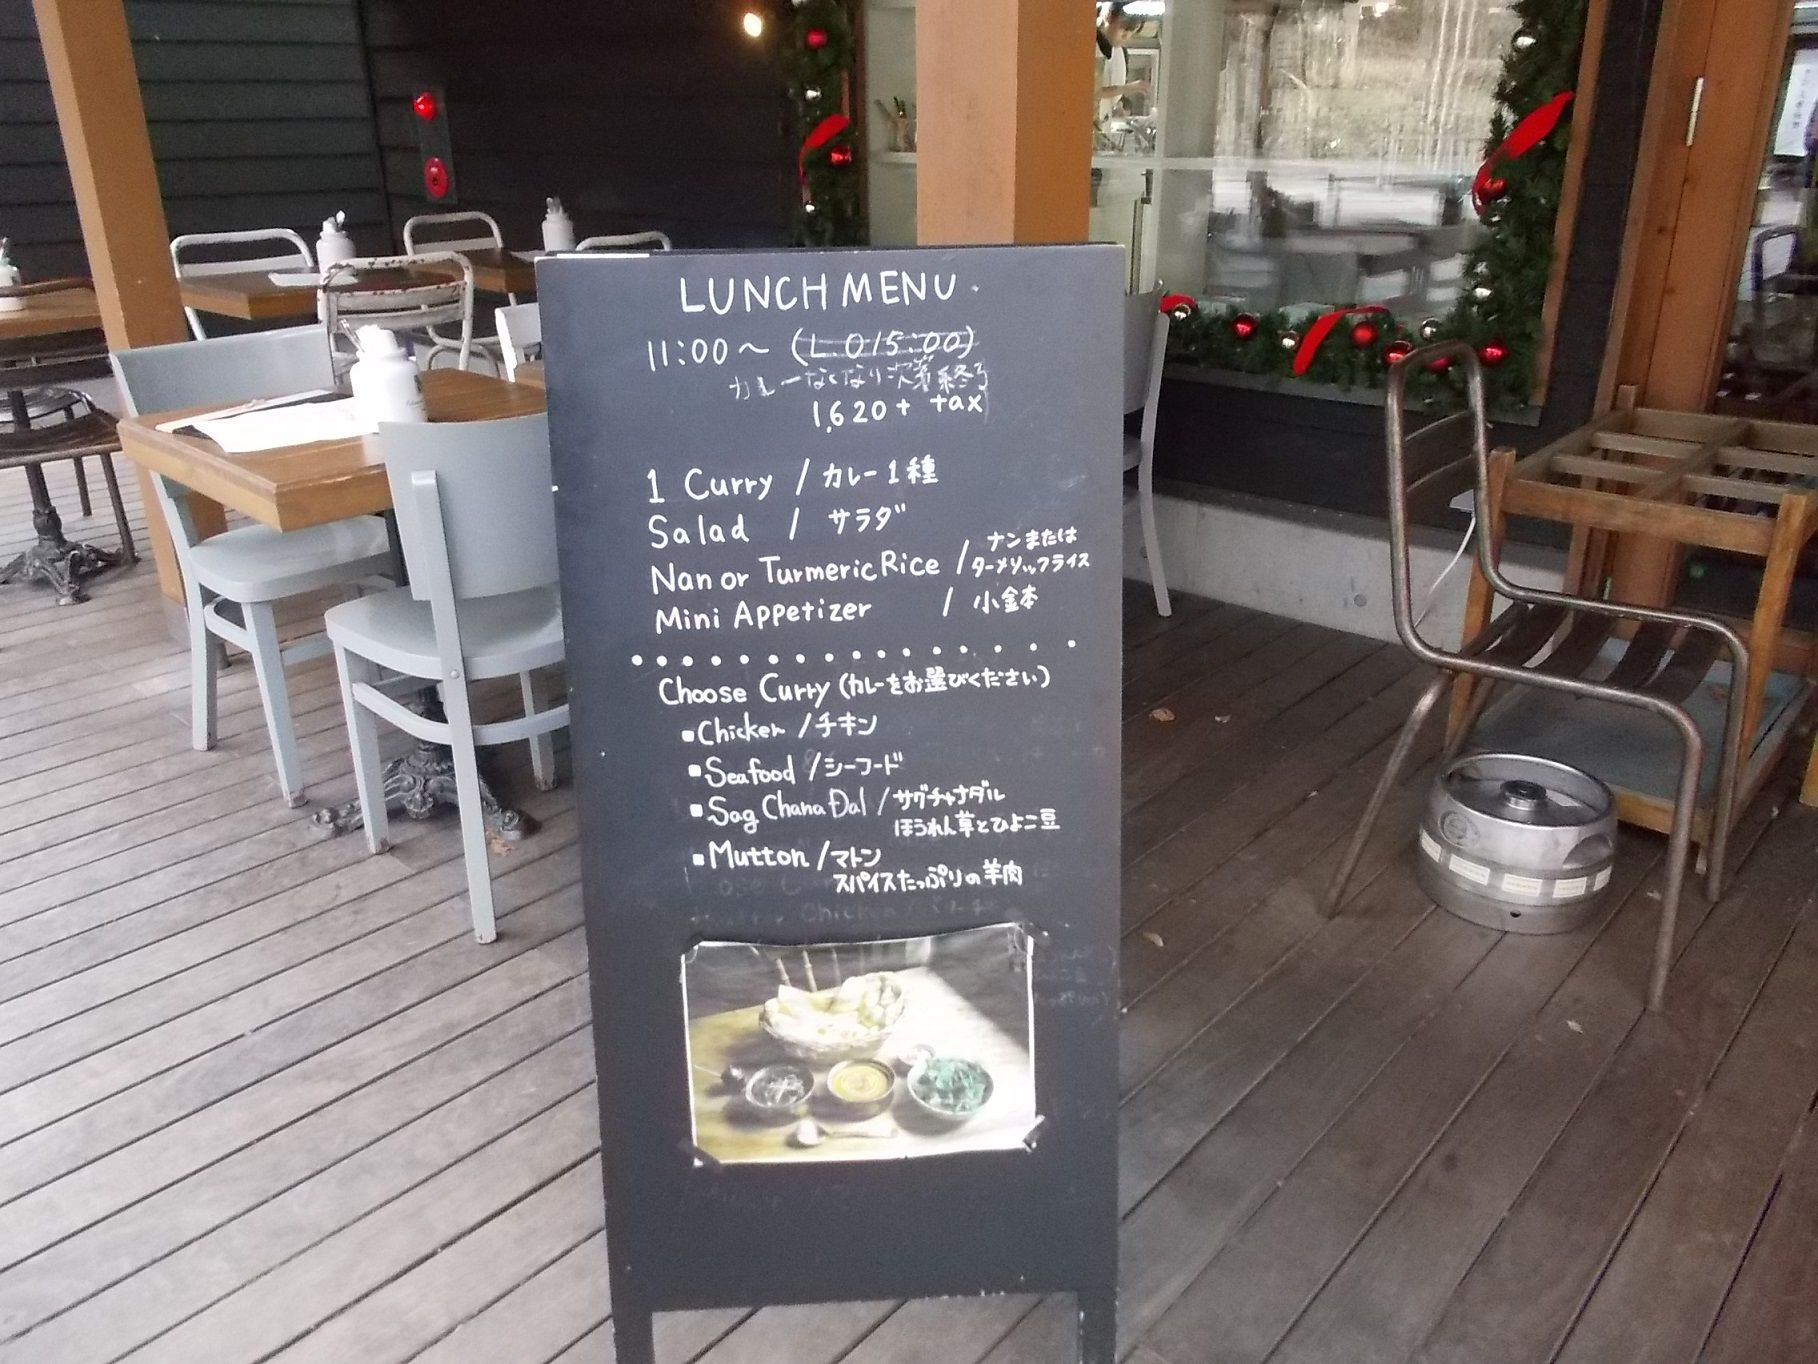 LUNCH MENU.
11:00〜 (L.O15:00)
カレーなくなり次第終了
1,620+ tax
1 Curry / カレー1種
Salad / サラダ
Nan or Turmeric Rice / ナンまたは
ターメリックライス
Mini Appetizer / 小鉢
Choose Curry (カレーをお選びください)
▪Chicken / チキン
▪Seafood / シーフード
▪Sag Chana Dal / サグチャナダル
ほうれん草とひよこ豆
▪Mutton / マトン
スパイスたっぷりの羊肉